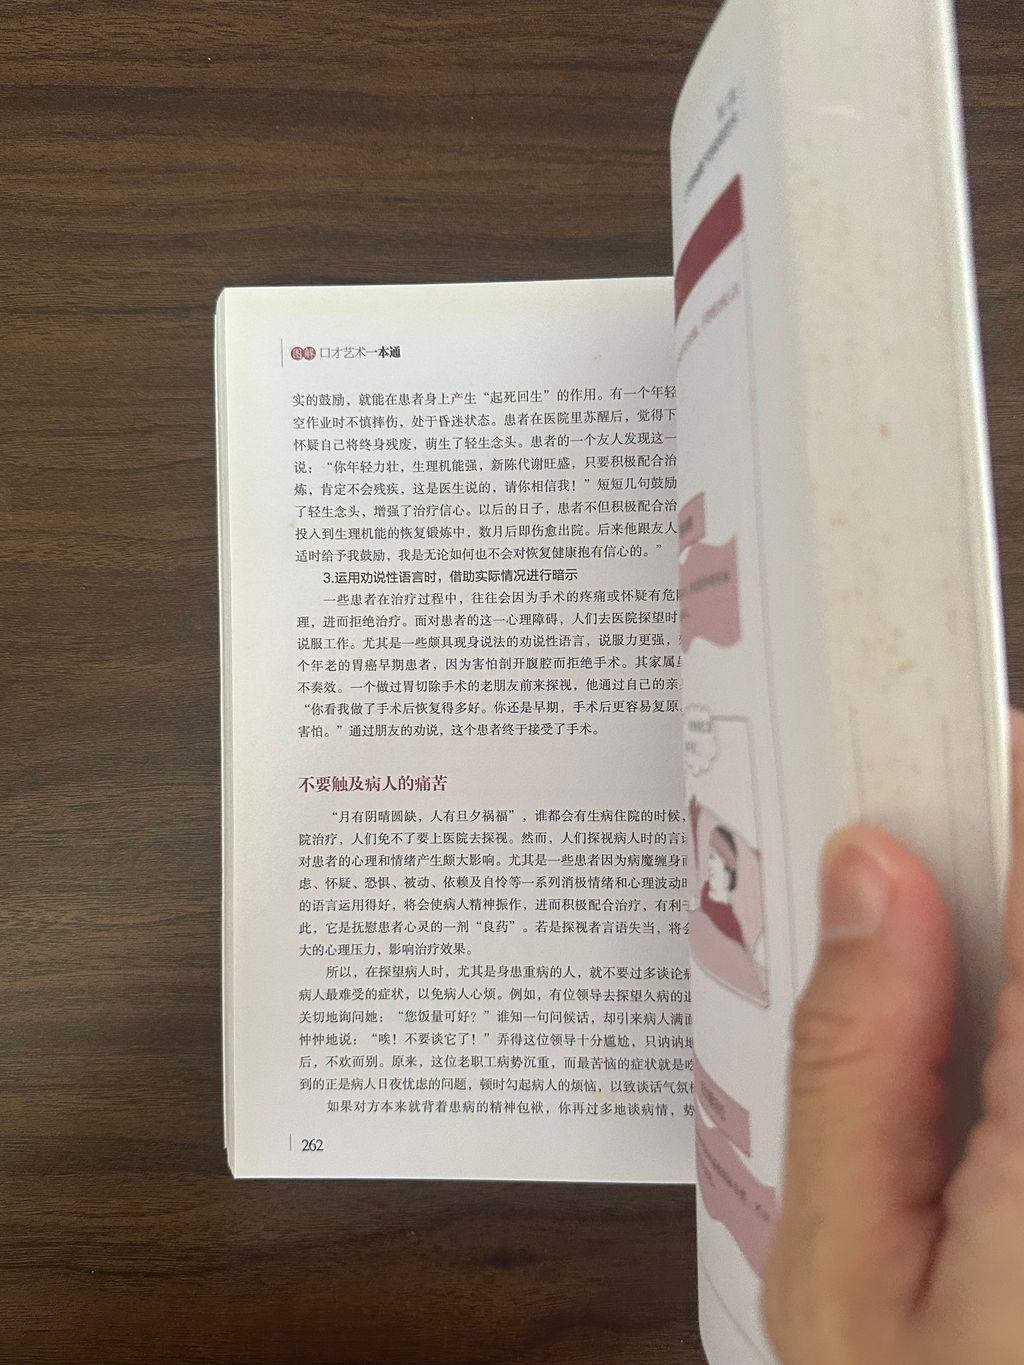 图解 口才艺术一本通
实的鼓励，就能在患者身上产生“起死回生”的作用。有一个年轻
空作业时不慎摔伤，处于昏迷状态。患者在医院里苏醒后，觉得下
怀疑自己将终身残废，萌生了轻生念头。患者的一个友人发现这一
说：“你年轻力壮，生理机能强，新陈代谢旺盛，只要积极配合治
炼，肯定不会残疾，这是医生说的，请你相信我！”短短几句鼓励
了轻生念头，增强了治疗信心。以后的日子，患者不但积极配合治
投入到生理机能的恢复锻炼中，数月后即伤愈出院。后来他跟友人
适时给予我鼓励，我是无论如何也不会对恢复健康抱有信心的。”
3.运用劝说性语言时，借助实际情况进行暗示
一些患者在治疗过程中，往往会因为手术的疼痛或怀疑有危
理，进而拒绝治疗。面对患者的这一心理障碍，人们去医院探望时
说服工作。尤其是一些颇具现身说法的劝说性语言，说服力更强，
个年老的胃癌早期患者，因为害怕剖开腹腔而拒绝手术。其家属
不奏效。一个做过胃切除手术的老朋友前来探视，他通过自己的亲
“你看我做了手术后恢复得多好。你还是早期，手术后更容易复原
害怕。”通过朋友的劝说，这个患者终于接受了手术。
不要触及病人的痛苦
“月有阴晴圆缺，人有旦夕祸福”，谁都会有生病住院的时候，
院治疗，人们免不了要上医院去探视。然而，人们探视病人时的言
对患者的心理和情绪产生颇大影响。尤其是一些患者因为病魔缠身
虑、怀疑、恐惧、被动、依赖及自怜等一系列消极情绪和心理波动
的语言运用得好，将会使病人精神振作，进而积极配合治疗，有利
此，它是抚慰患者心灵的一剂“良药”。若是探视者言语失当，将会
大的心理压力，影响治疗效果。
所以，在探望病人时，尤其是身患重病的人，就不要过多谈论
病人最难受的症状，以免病人心烦。例如，有位领导去探望久病的
关切地询问她：“您饭量可好？”谁知一句问候话，却引来病人满面
忡忡地说：“唉！不要谈它了！”弄得这位领导十分尴尬，只讷讷地
后，不欢而别。原来，这位老职工病势沉重，而最苦恼的症状就是
到的正是病人日夜忧虑的问题，顿时勾起病人的烦恼，以致谈话气氛
如果对方本来就背着患病的精神包袱，你再过多地谈病情，势
262